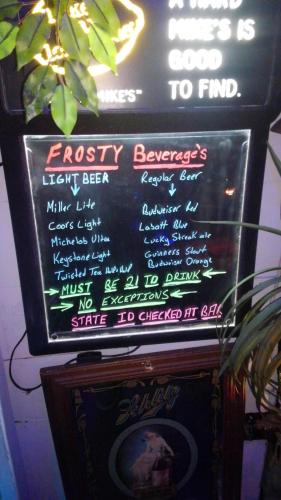 A HARD
MIKE'S IS
GOOD
TO FIND.
MIKE'S"
FROSTY Beverage's
LIGHT BEER Regular Beer
Miller Lite Budweiser Red
Coors Light Labatt Blue
Michelob Ultra Lucky Streak ale
Keystone Light Guinners Stout
Twisted Tea Half+Half Budwiser Orange
MUST BE 21 TO DRINK
NO EXCEPTIONS
STATE ID CHECKED AT BAR